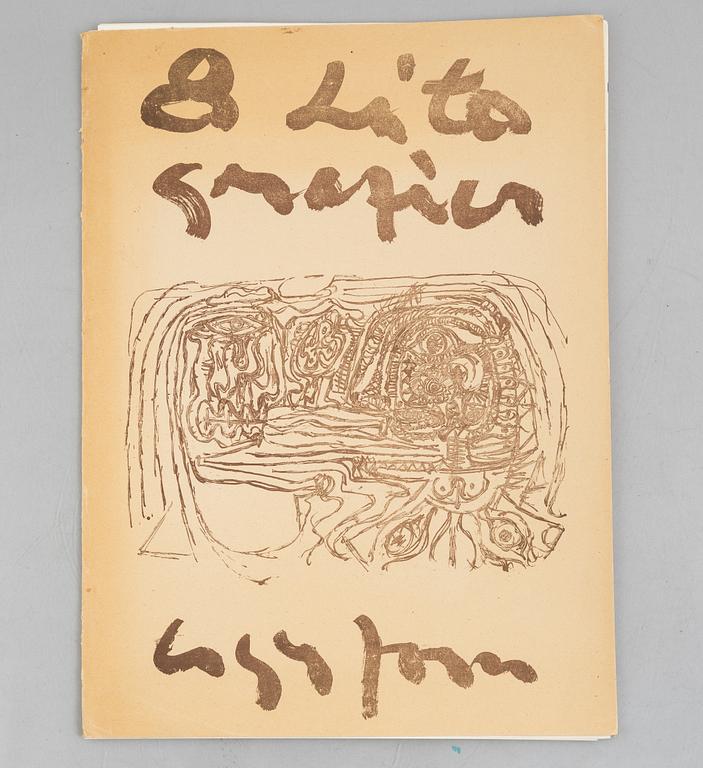 8 Lito
grafier
asger jorn